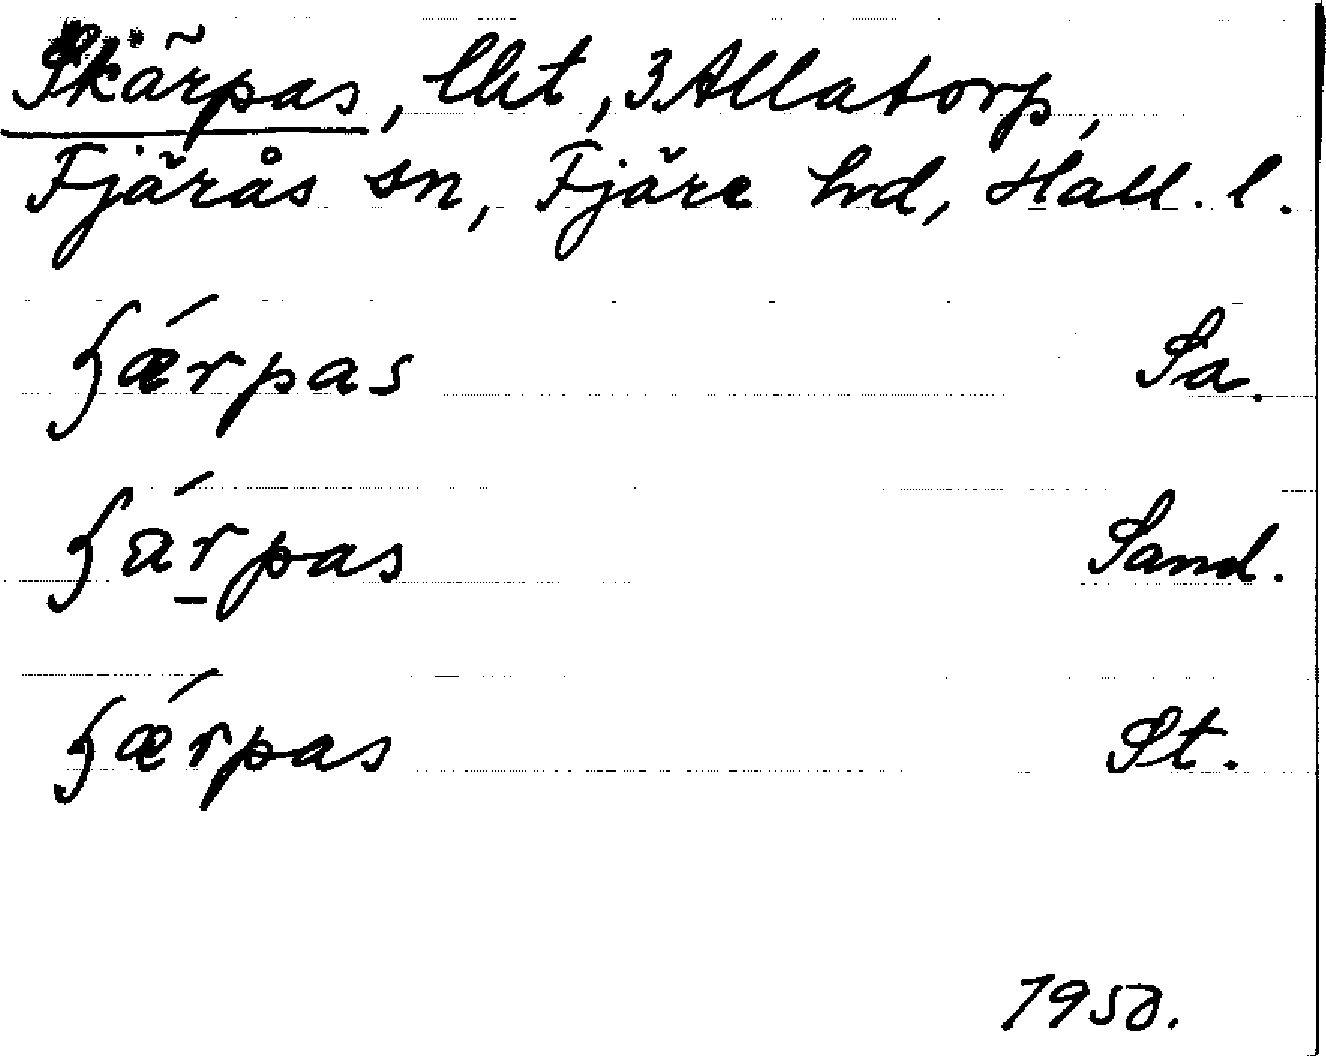 Skärpas, lht, 3 Allatorp,
Fjärås sn, Fjäre hd, Hall. l.
ʒǽrpas Sa.
ʒär̠pas Sand.
ʒǽrpas St.
1950.